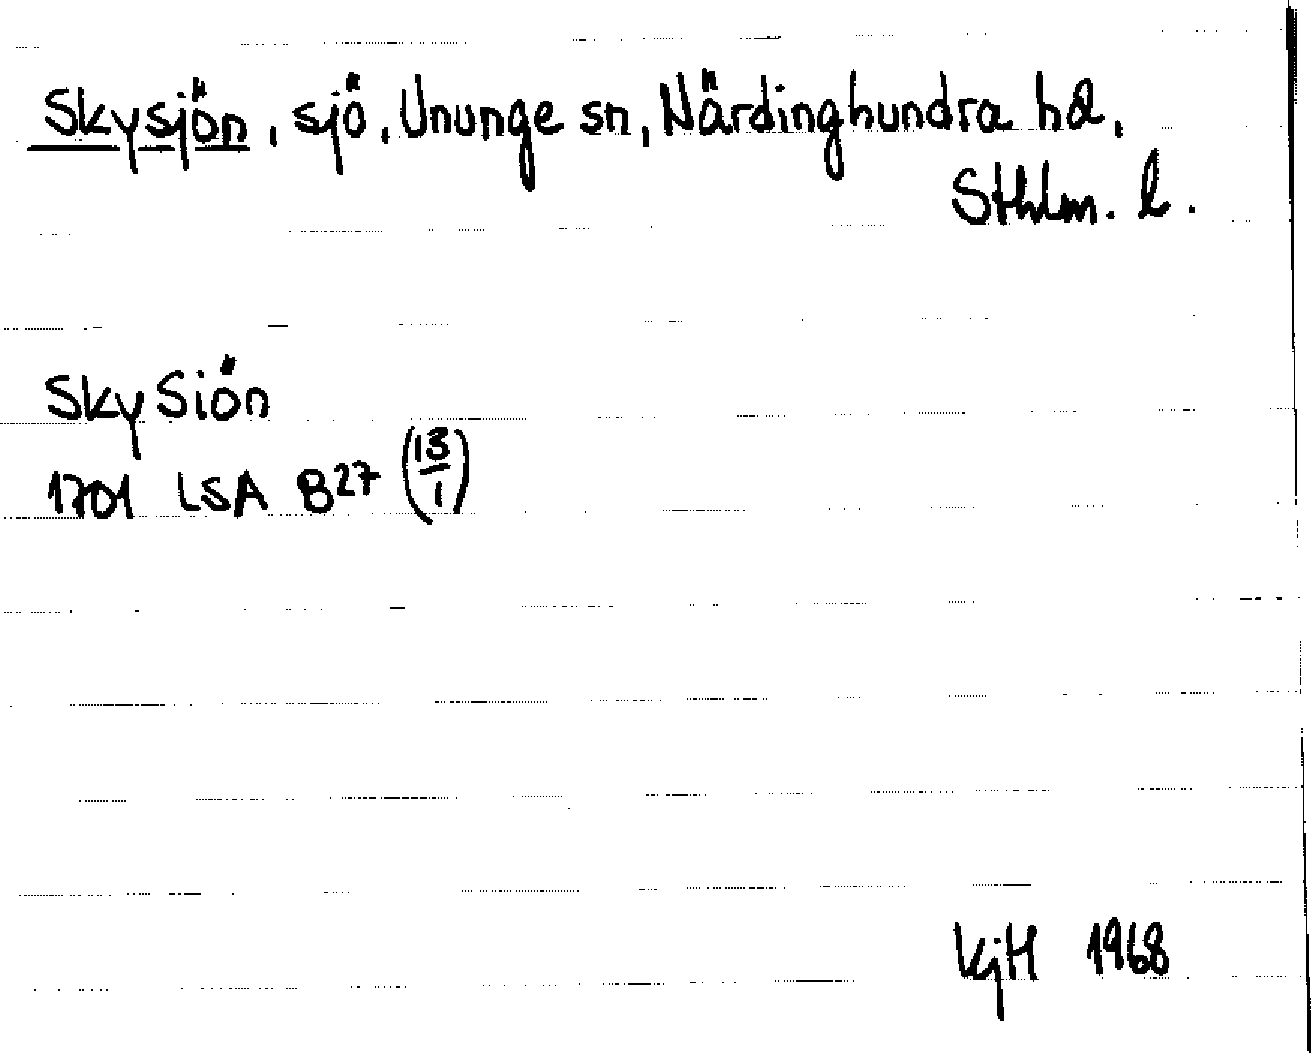 Skysjön, sjö, Ununge sn, Närdinghundra hd,
Sthlm. l.
Sky Siön
1701 LSA B27 (13/1)
KjH 1968